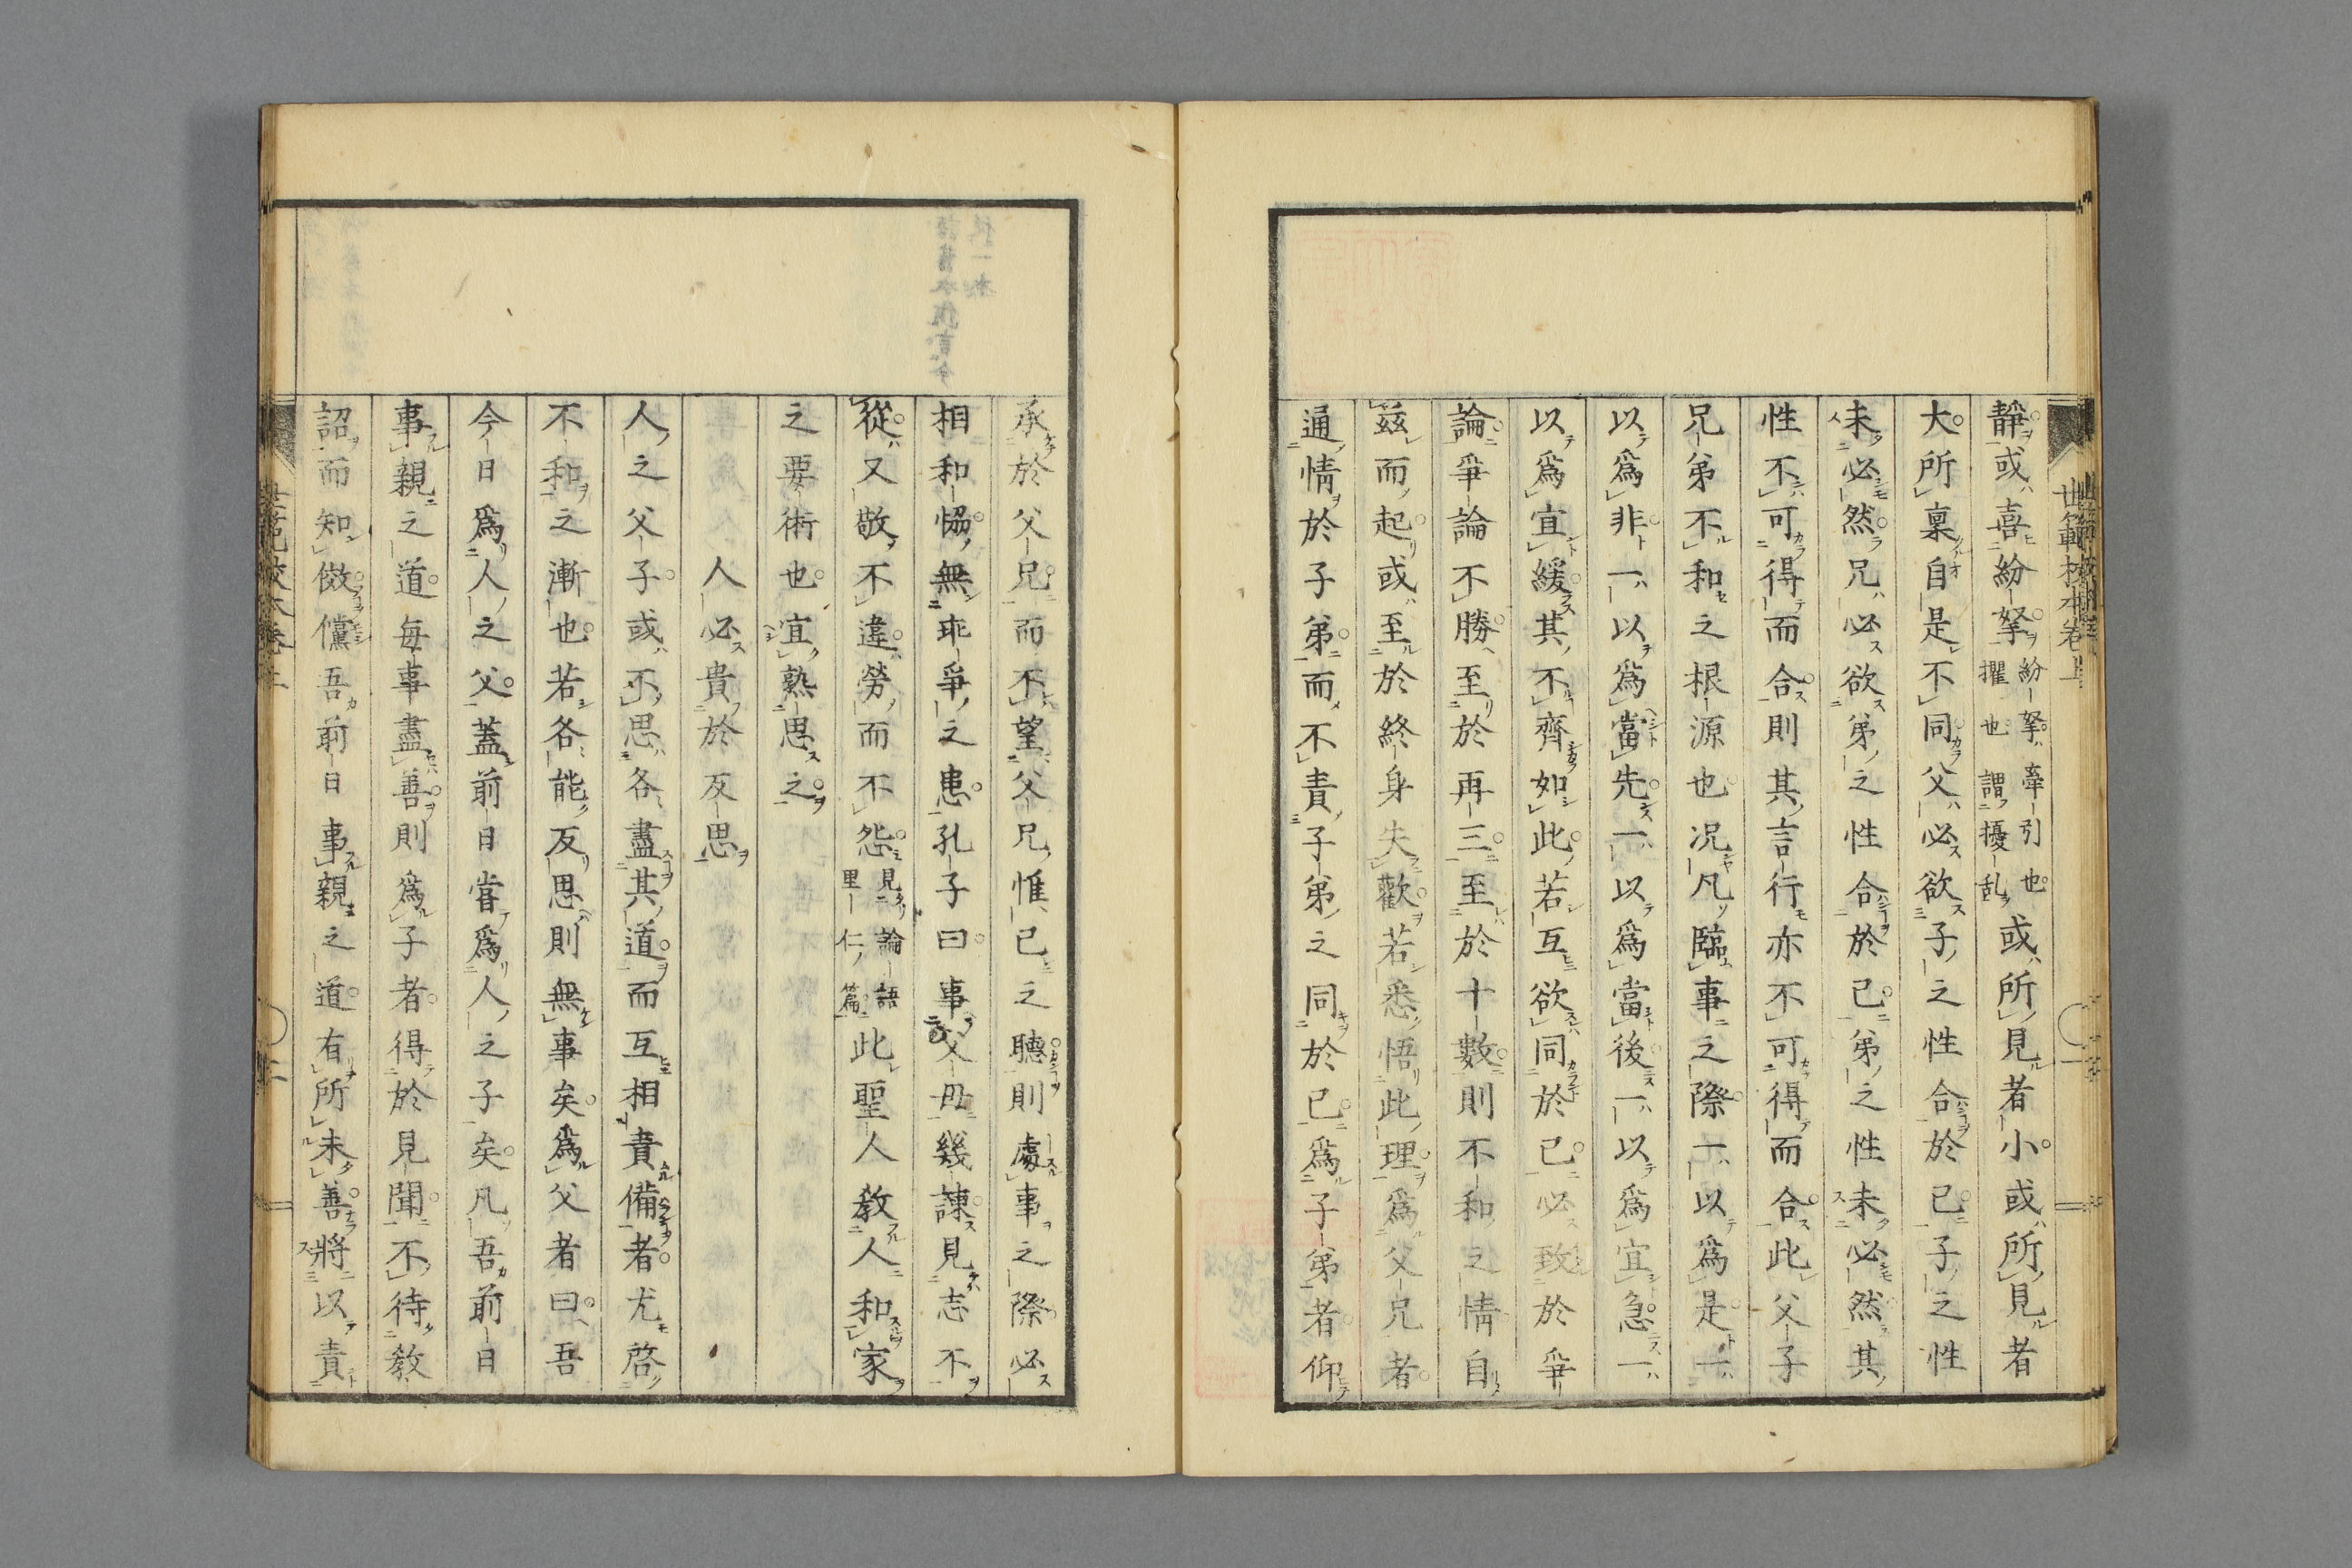 世範校本卷上
靜或喜紛拏紛拏牽引也攫也謂擾亂或所見者小或所見者
大所稟自是不同父必欲子之性合於己子之性
未必然兄必欲弟之性合於己弟之性未必然其
性不可得而合則其言行亦不可得而合此父子
兄弟不和之根源也况凡臨事之際一以爲是一
以爲非一以爲當先一以爲當後一以爲宜急一
以爲宜緩其不齊如此若互欲同於己必致於爭
論爭論不勝至於再三至於十數則不和之情自
茲而起或至於終身失歡若悉悟此理爲父兄者
通情於子弟而不責子弟之同於己爲子弟者仰
承於父兄而不望父兄惟己之聽則處事之際必
相和恊無乖爭之患孔子曰事父母幾諫見志不
從又敬不違勞而不怨見論語里仁篇此聖人教人和家
之要術也宜熟思之
人必貴於反思
人之父子或不思各盡其道而互相責備者尤啓
不和之漸也若各能反思則無事矣爲父者曰吾
今日爲人之父蓋前日嘗爲人之子矣凡吾前日
事親之道每事盡善則爲子者得於見聞不待教
詔而知傚儻吾前日事親之道有所未善將以責
世範校本卷上